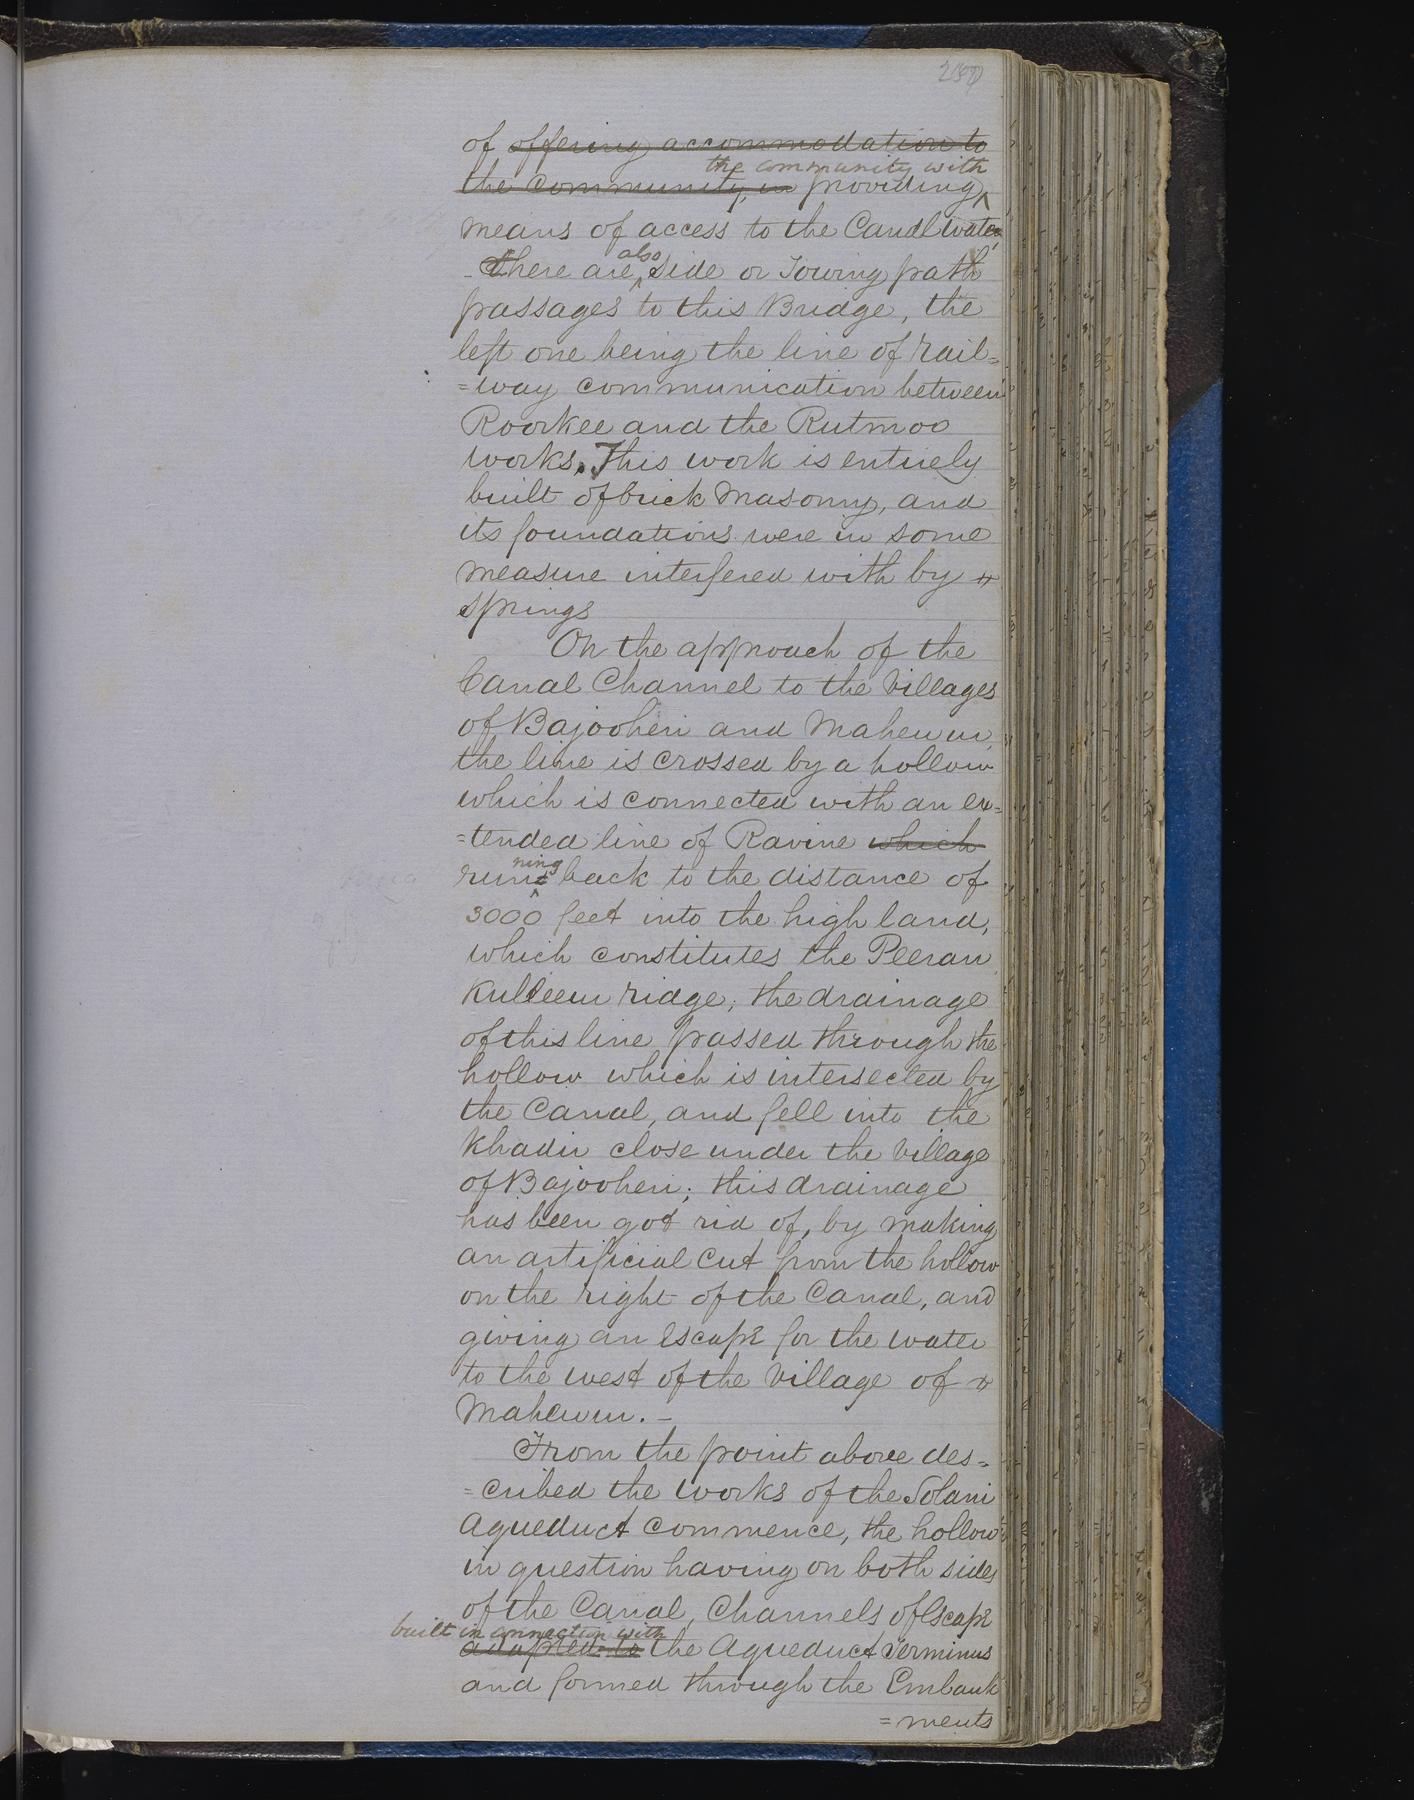 of offering accommodation to
the community with
the community, in providing
means of access to the Canal water
there are also side or Towing path
passages to this Bridge, the
left one being the line of rail=
=way communication between
Roorkee and the Rutmoo
works. This work is entirely
built of brick Masonry, and
its foundations were in some
measure interfered with by
springs
On the approach of the
Canal Channel to the Villages
of Bajooheri and Mahewur,
the line is crossed by a hollow
which is connected with an ex=
=tended line of Ravine which
running back to the distance of
3000 feet into the high land,
which constitutes the Peeran
Kulleeur ridge; the drainage
of this line passed through the
hollow which is intersected by
the Canal, and fell into the
Khadir close under the Village
of Bajooheri; this drainage
has been got rid of, by making
an artificial cut from the hollow
on the right of the Canal, and
giving an escape for the water
to the west of the Village of
Mahewur. _
From the point above des=
=cribed the works of the Solani
Aqueduct commence, the hollow
in question having on both sides
of the Canal, Channels of Escape
built in connection with
adapted to the Aqueduct Terminus
and formed through the Embank
=ments